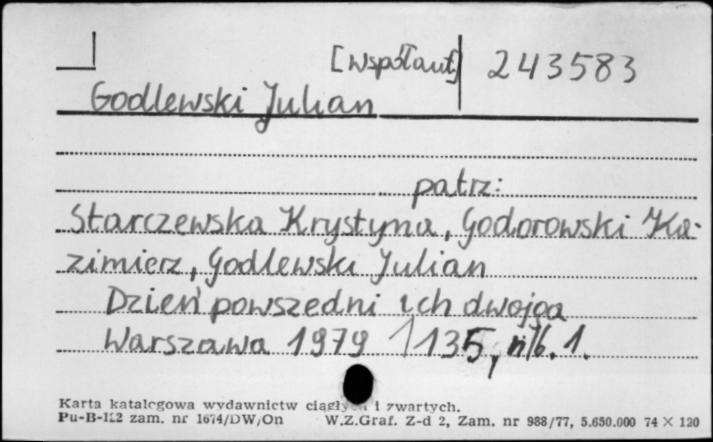 [współaut] 243583
Godlewski Julian
patrz:
Starczewska Krystyna, Godorowski Ka-
zimierz, Godlewski Julian
Dzień powszedni ich dwojga
Warszawa 1979 1135, nlb. 1.
Karta katalogowa wydawnictw ciągłych i zwartych.
Pu-B-122 zam. nr 1674/DW/On W.Z.Graf. Z-d 2, Zam. nr 988/77, 5.650.000 74 × 120